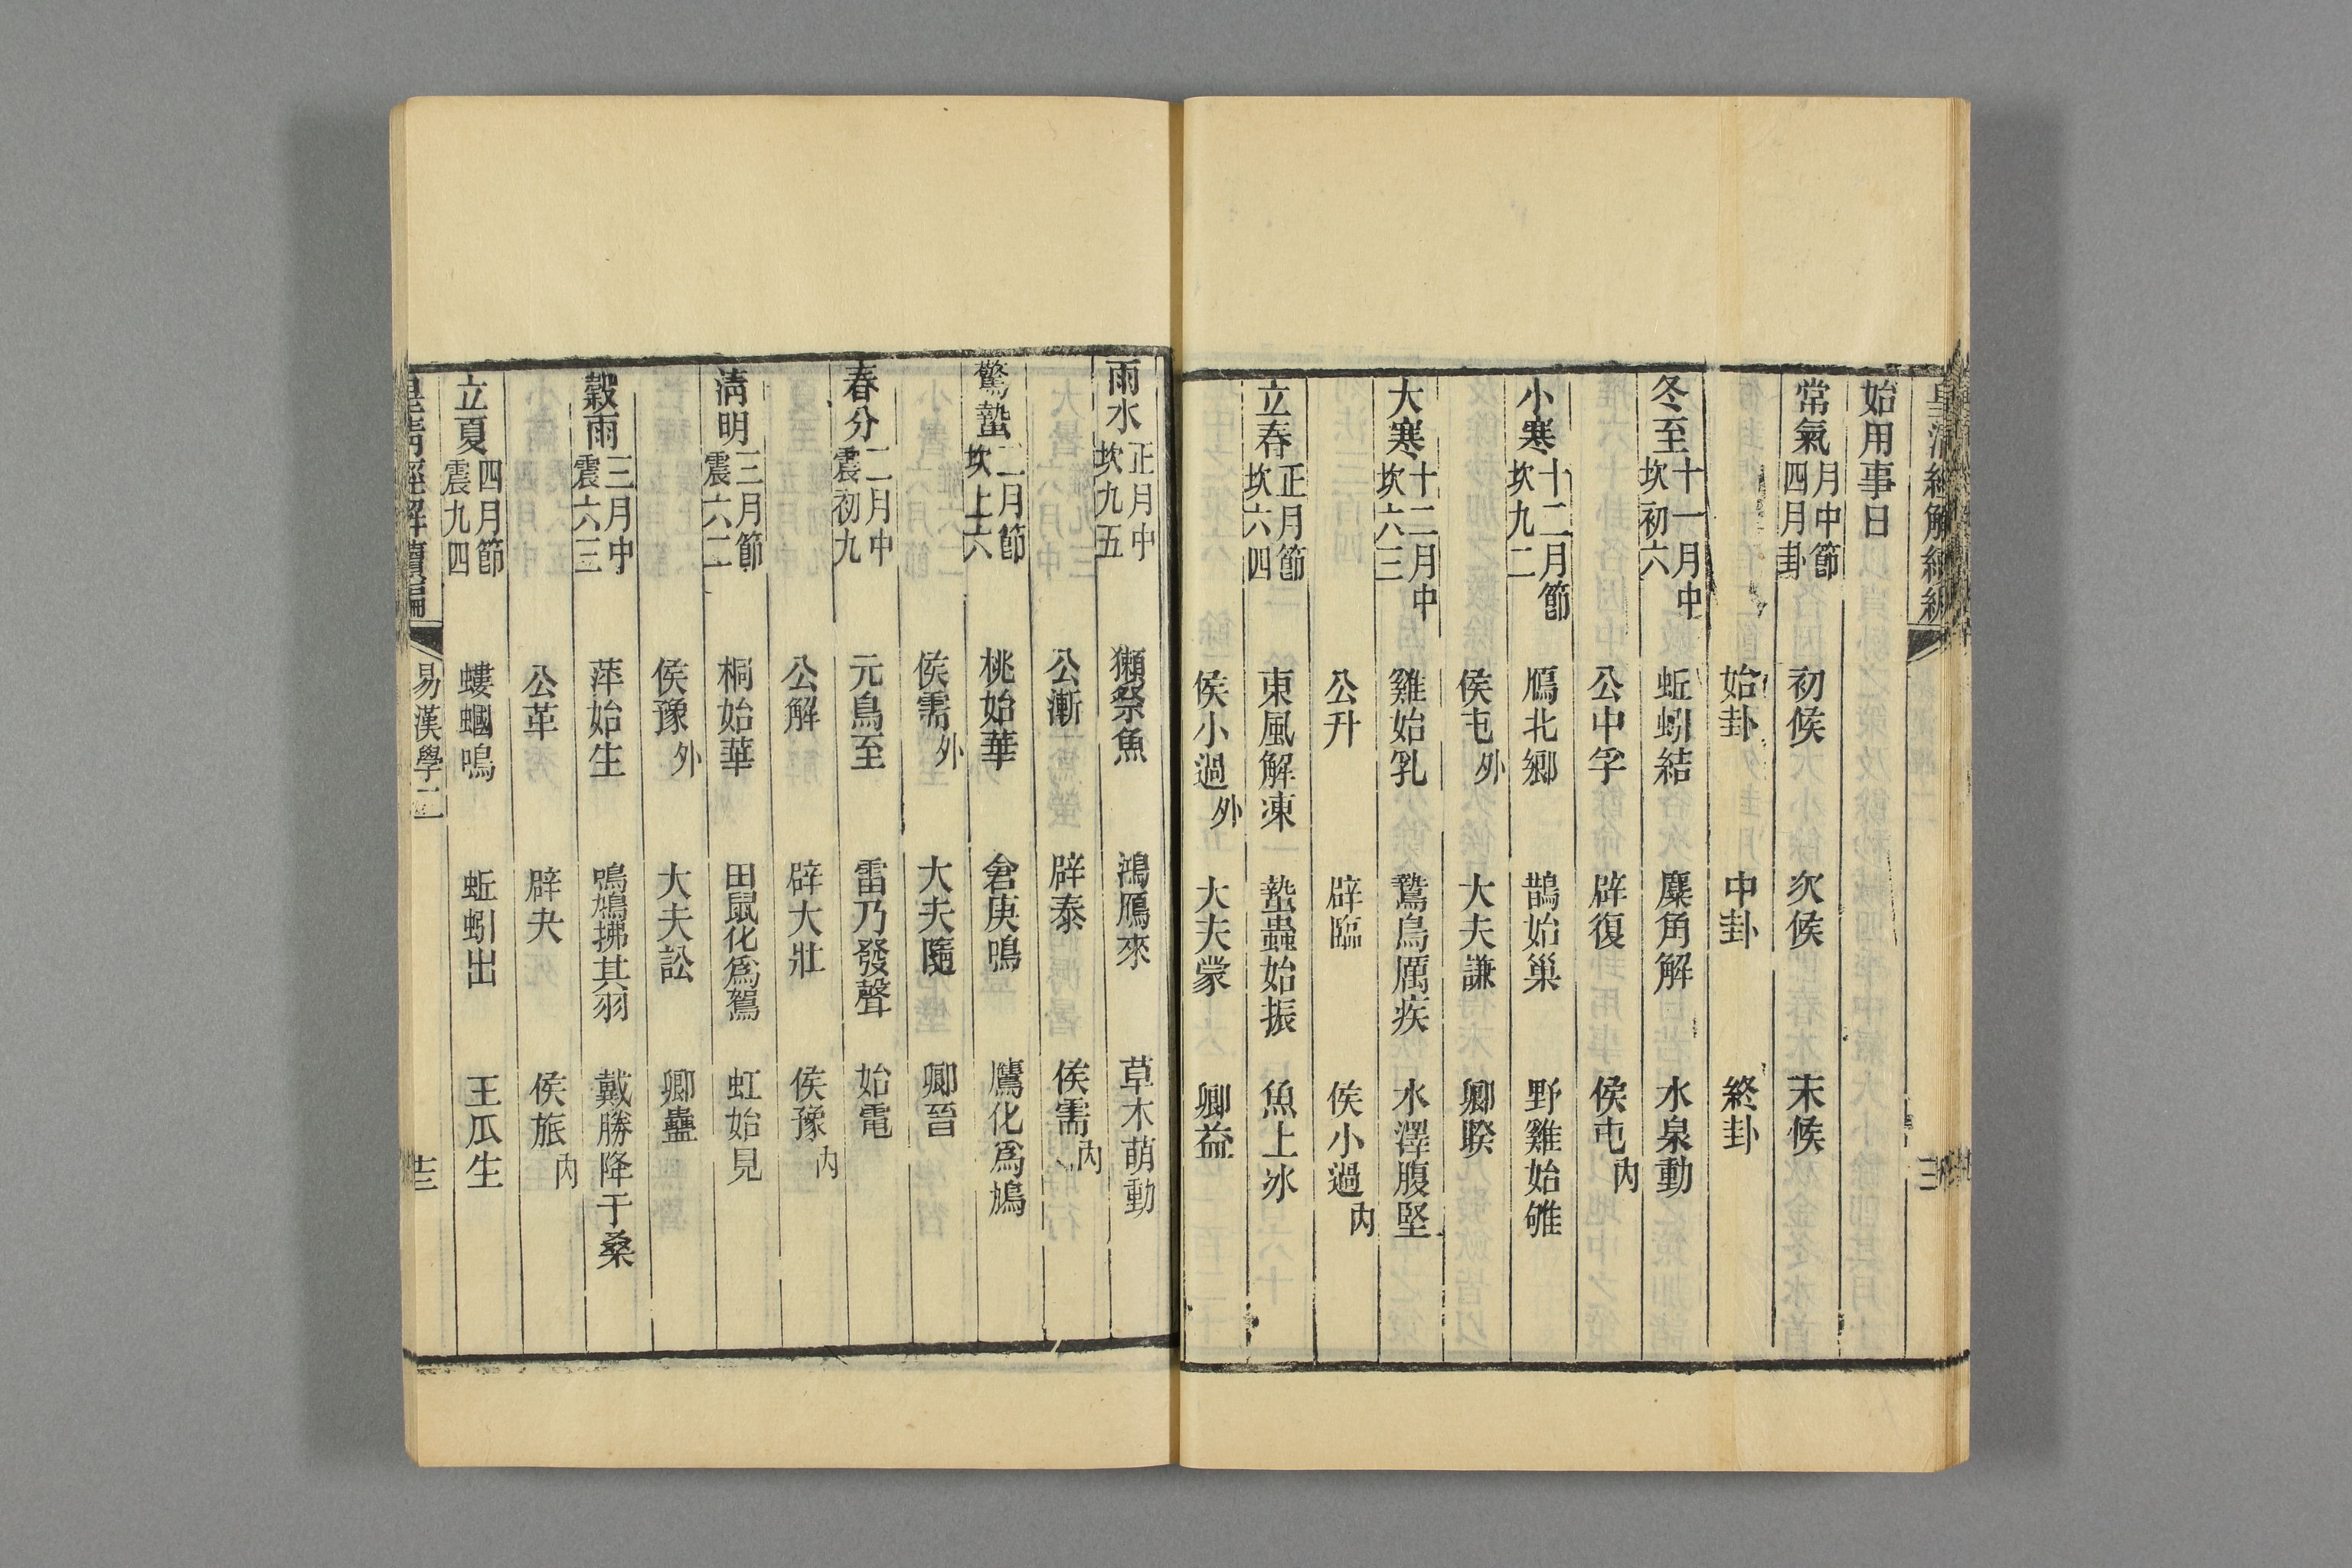 始用事日
常氣 月中節四月卦 初候 次候 末候
始卦 中卦 終卦
冬至 十一月中坎初六 蚯蚓結 麋角解 水泉動
公中孚 辟復 侯屯內
小寒 十二月節坎九二 鴈北鄉 鵲始巢 野雞始雊
侯屯外 大夫謙 卿睽
大寒 十二月中坎六三 雞始乳 鷙鳥厲疾 水澤腹堅
公升 辟臨 侯小過內
立春 正月節坎六四 東風解凍 蟄蟲始振 魚上冰
侯小過外 大夫蒙 卿益
雨水 正月中坎九五 獺祭魚 鴻鴈來 草木萌動
公漸 辟泰 侯需內
驚蟄 二月節坎上六 桃始華 倉庚鳴 鷹化爲鳩
侯需外 大夫隨 卿晉
春分 二月中震初九 元鳥至 雷乃發聲 始電
公解 辟大壯 侯豫內
淸明 三月節震六二 桐始華 田鼠化爲鴽 虹始見
侯豫外 大夫訟 卿蠱
穀雨 三月中震六三 萍始生 鳴鳩拂其羽 戴勝降于桑
公革 辟夬 侯旅內
立夏 四月節震九四 螻蟈鳴 蚯蚓出 王瓜生
皇淸經解續編 易漢學二 十三